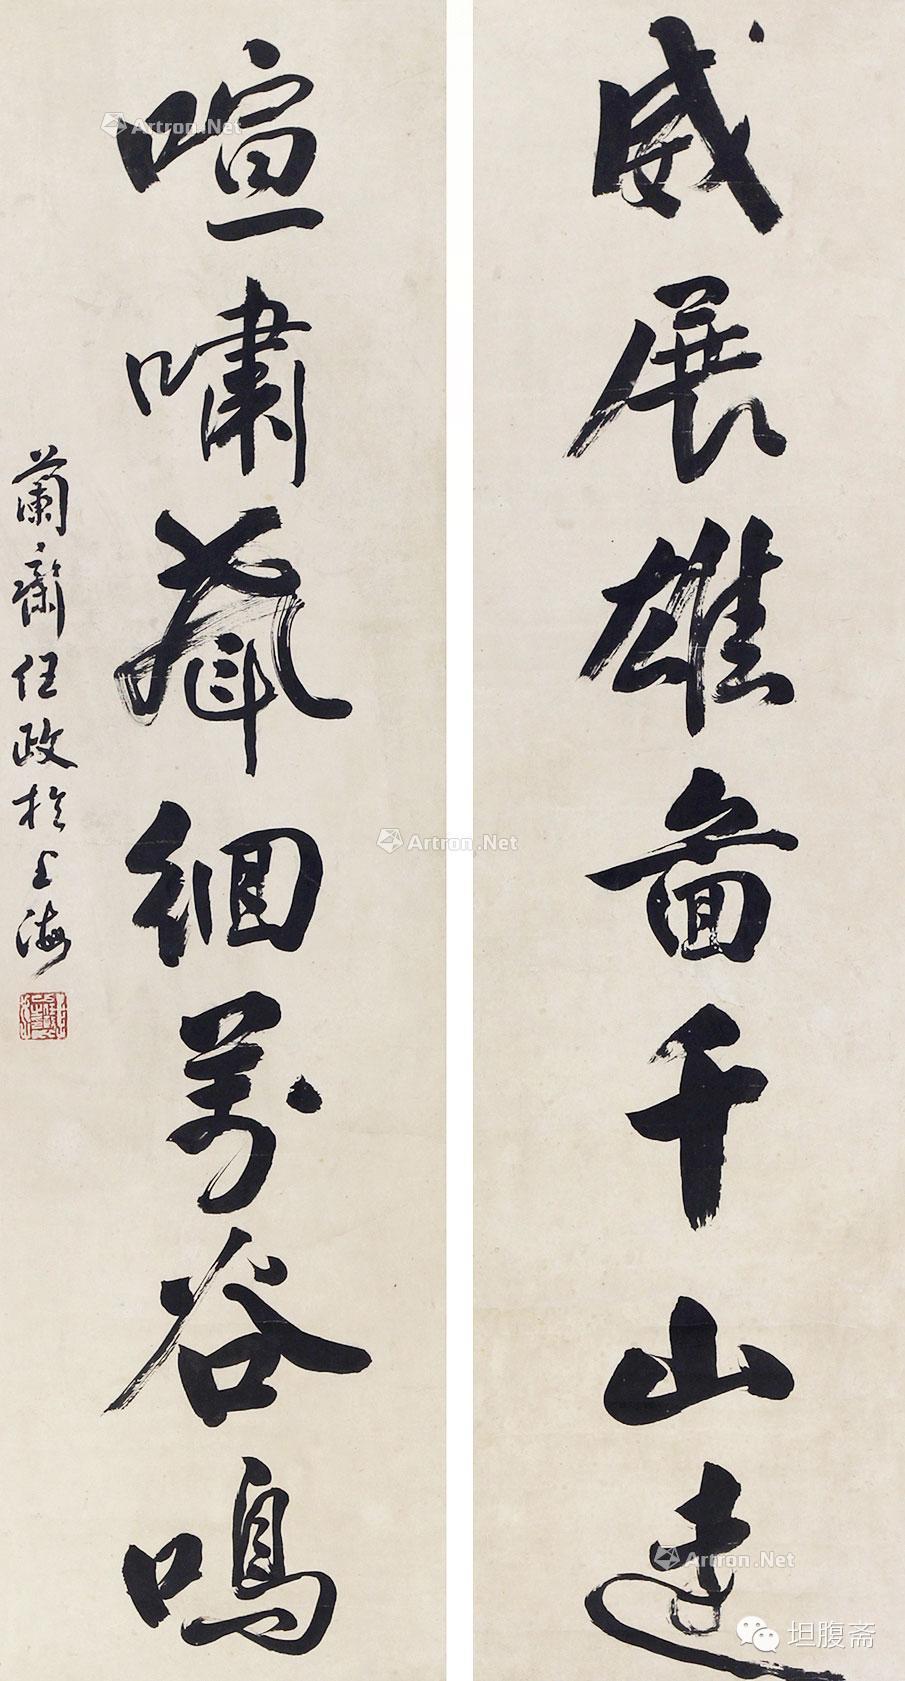 威展雄圖千山遠
喧嘯萬谷鳴
蘭齋任政於上海
Artron.Net
Artron.Net
Artron.Net
坦腹斋